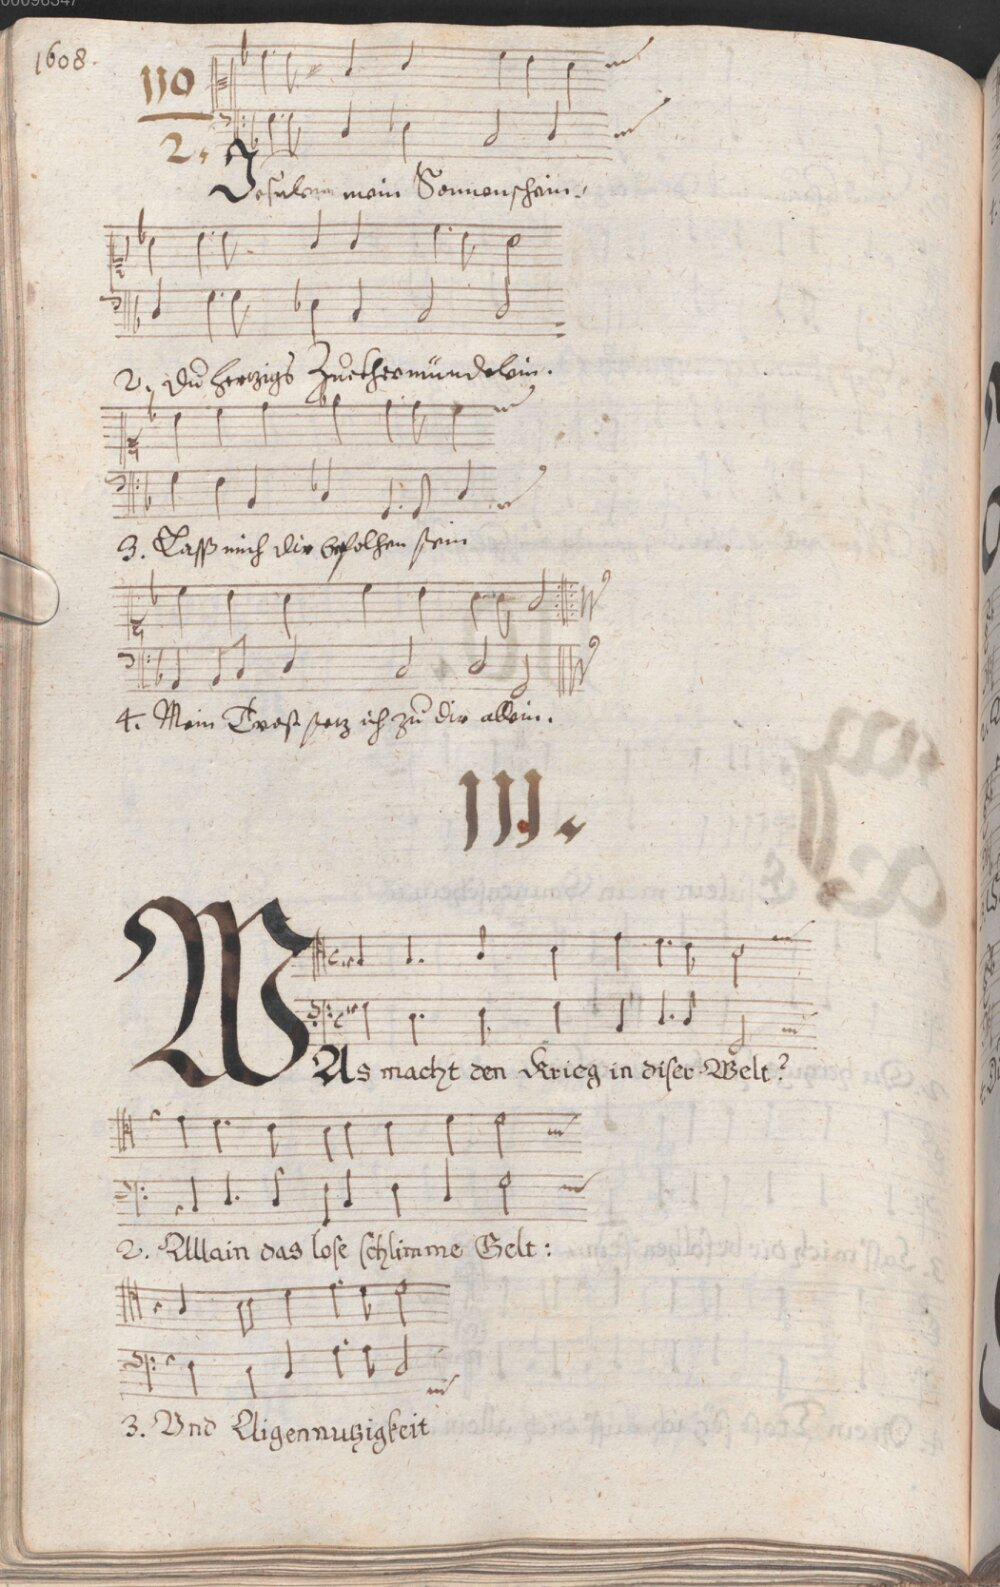 00096347
1608.
110
2.
Jesulein mein Sonnenschein.
2. Du hertzigs Zuckermündelein.
3. Lass mich dir befolhen sein
4. Mein Trost setz ich zu dir allein.
111.
WAs macht den Krieg in diser Welt?
2. Allain das lose schlimme Gelt:
3. Vnd Aigennutzigkeit